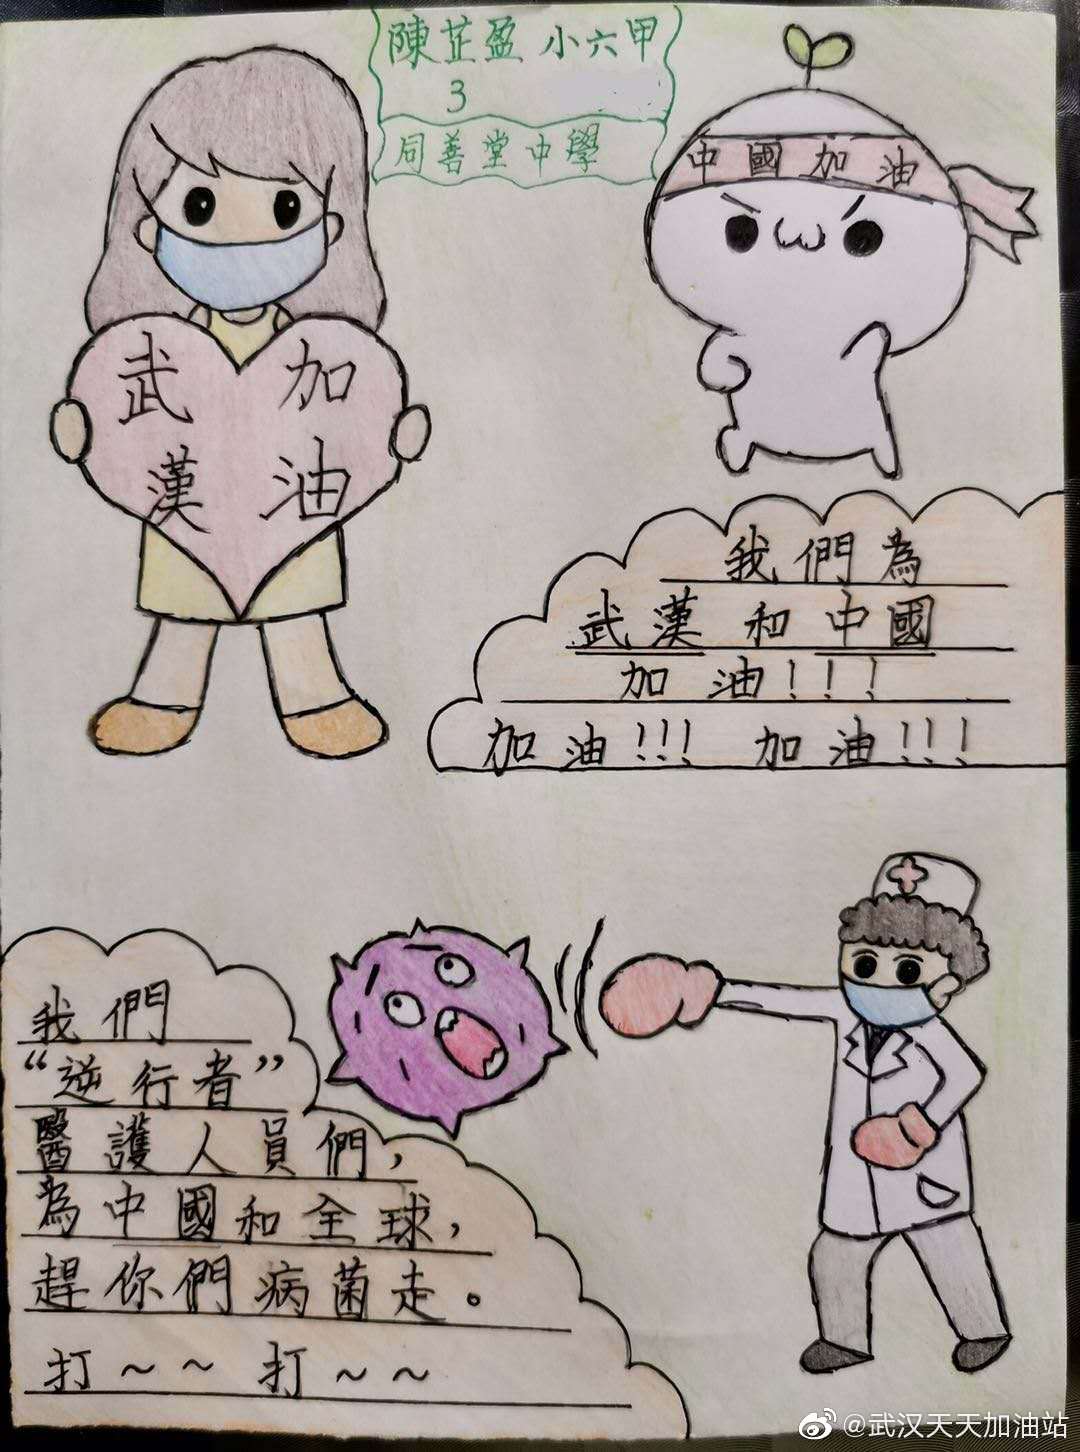 陳芷盈 小六甲
3
同善堂中學
中國加油
武漢
加油
我們為
武漢和中國
加油!!!
加油!!! 加油!!!
我們
“逆行者”
醫護人員們,
為中國和全球,
趕你們病菌走。
打~~打~~
@武汉天天加油站